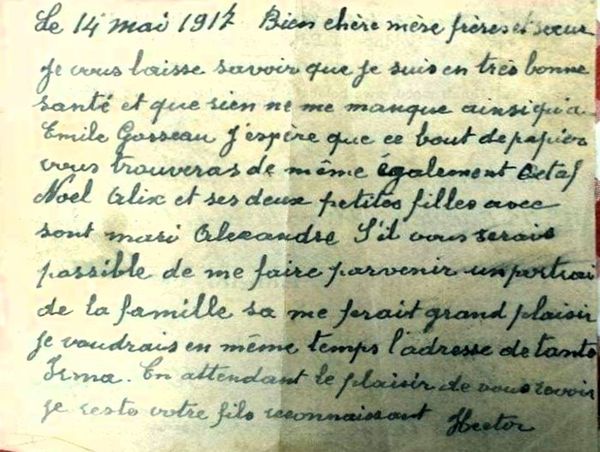 Le 14 mai 1917 Bien chère mère frères et sœur
je vous laisse savoir que je suis en très bonne
santé et que rien ne me manque ainsi qu'a
Emile Gosseau J'espère que ce bout de papier
vous trouveras de même également
Noel Alix et ses deux petites filles avec
sont mari Alexandre S'il vous serais
possible de me faire parvenir un portrai
de la famille sa me ferait grand plaisir
je voudrais en même temps l'adresse de tante
Irma. En attendant le plaisir de vous revoir
je reste votre fils reconnaissant Hector